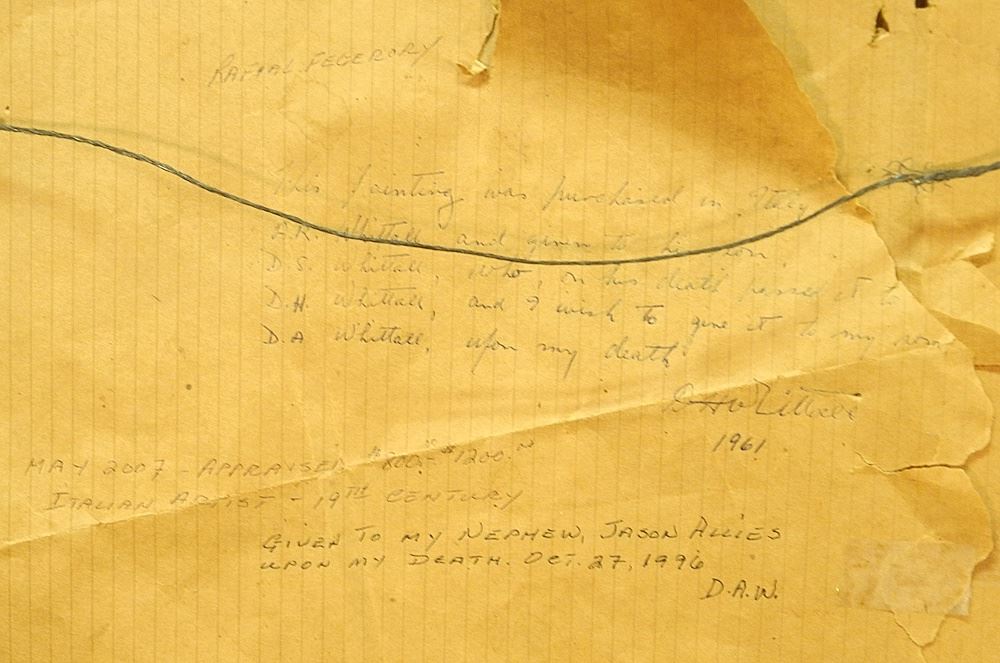 RAFIAL FEGERORY
This painting was purchased in Italy
A.R. Whittall and given to his son,
D.S. Whittall, who, on his death passed it to
D.H. Whittall, and I wish to give it to my son
D.A Whittall, upon my death
D H Whittall
1961.
MAY 2007 - APPRAISED $800.- $1200.00
ITALIAN ARTIST - 19TH CENTURY
GIVEN TO MY NEPHEW, JASON ALLIES
UPON MY DEATH. OCT. 27, 1996
D.A.W.